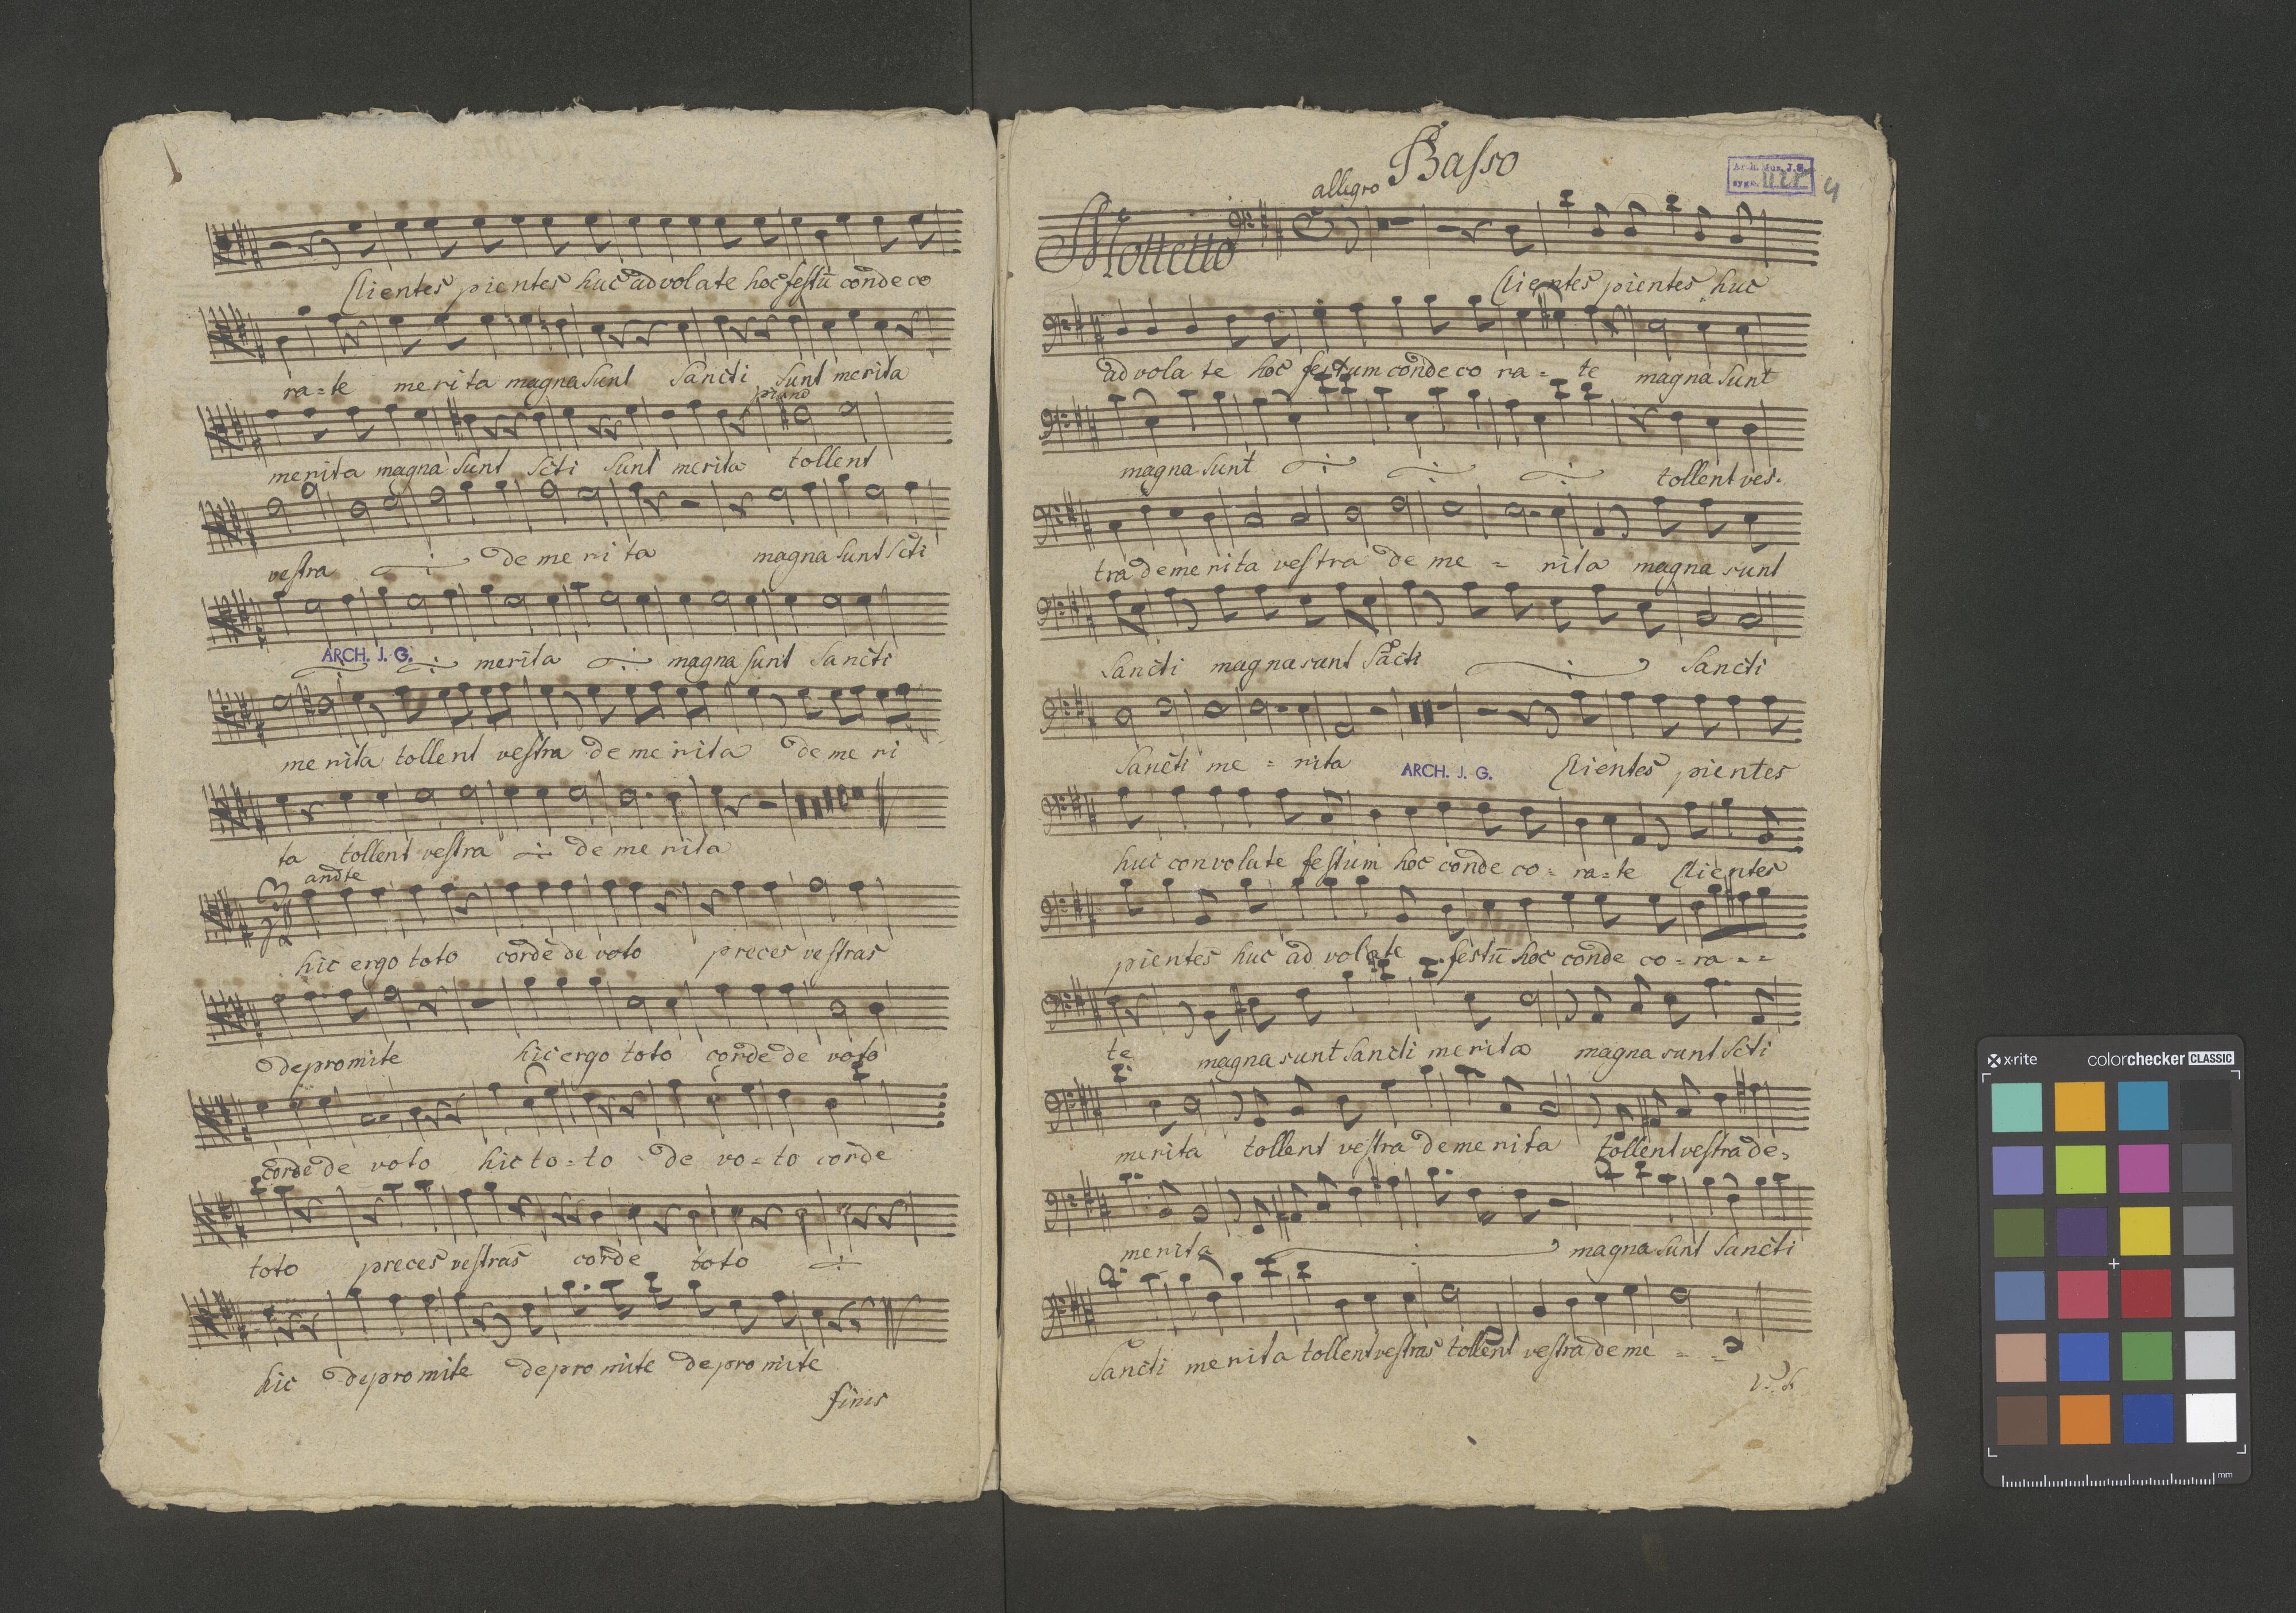 Clientes pientes huc advolate hoc festū condeco
ra=te merita magna sunt Sancti sunt merita
piano
merita magna sunt Scti sunt merita tollent
vestra demerita magna sunt Scti
ARCH. J. G.
merita magna sunt Sancti
merita tollent vestra demerita demeri
ta tollent vestra demerita
andte
hic ergo toto corde devoto preces vestras
depromite hic ergo toto corde de voto
corde de voto hic to=to de vo=to corde
toto preces vestras corde toto
hic depromite depromite depromite
finis
Basso
allegro
4
Mottetto
Clientes pientes huc
advolate hoc festum condecora=te magna sunt
magna sunt tollent ves=
tra demerita vestra deme=rita magna sunt
Sancti magna sunt Sācti Sancti
Sancti me=rita Clientes pientes
ARCH. J. G.
huc convolate festum hoc condeco=ra=te Clientes
pientes huc advolate festū hoc condeco=ra--
te magna sunt Sancti merita magna sunt Scti
merita tollent vestra demerita tollent vestra de=
merita magna sunt Sancti
Sancti merita tollent vestras tollent vestra deme = =
V. S.
x·rite colorchecker CLASSIC
mm